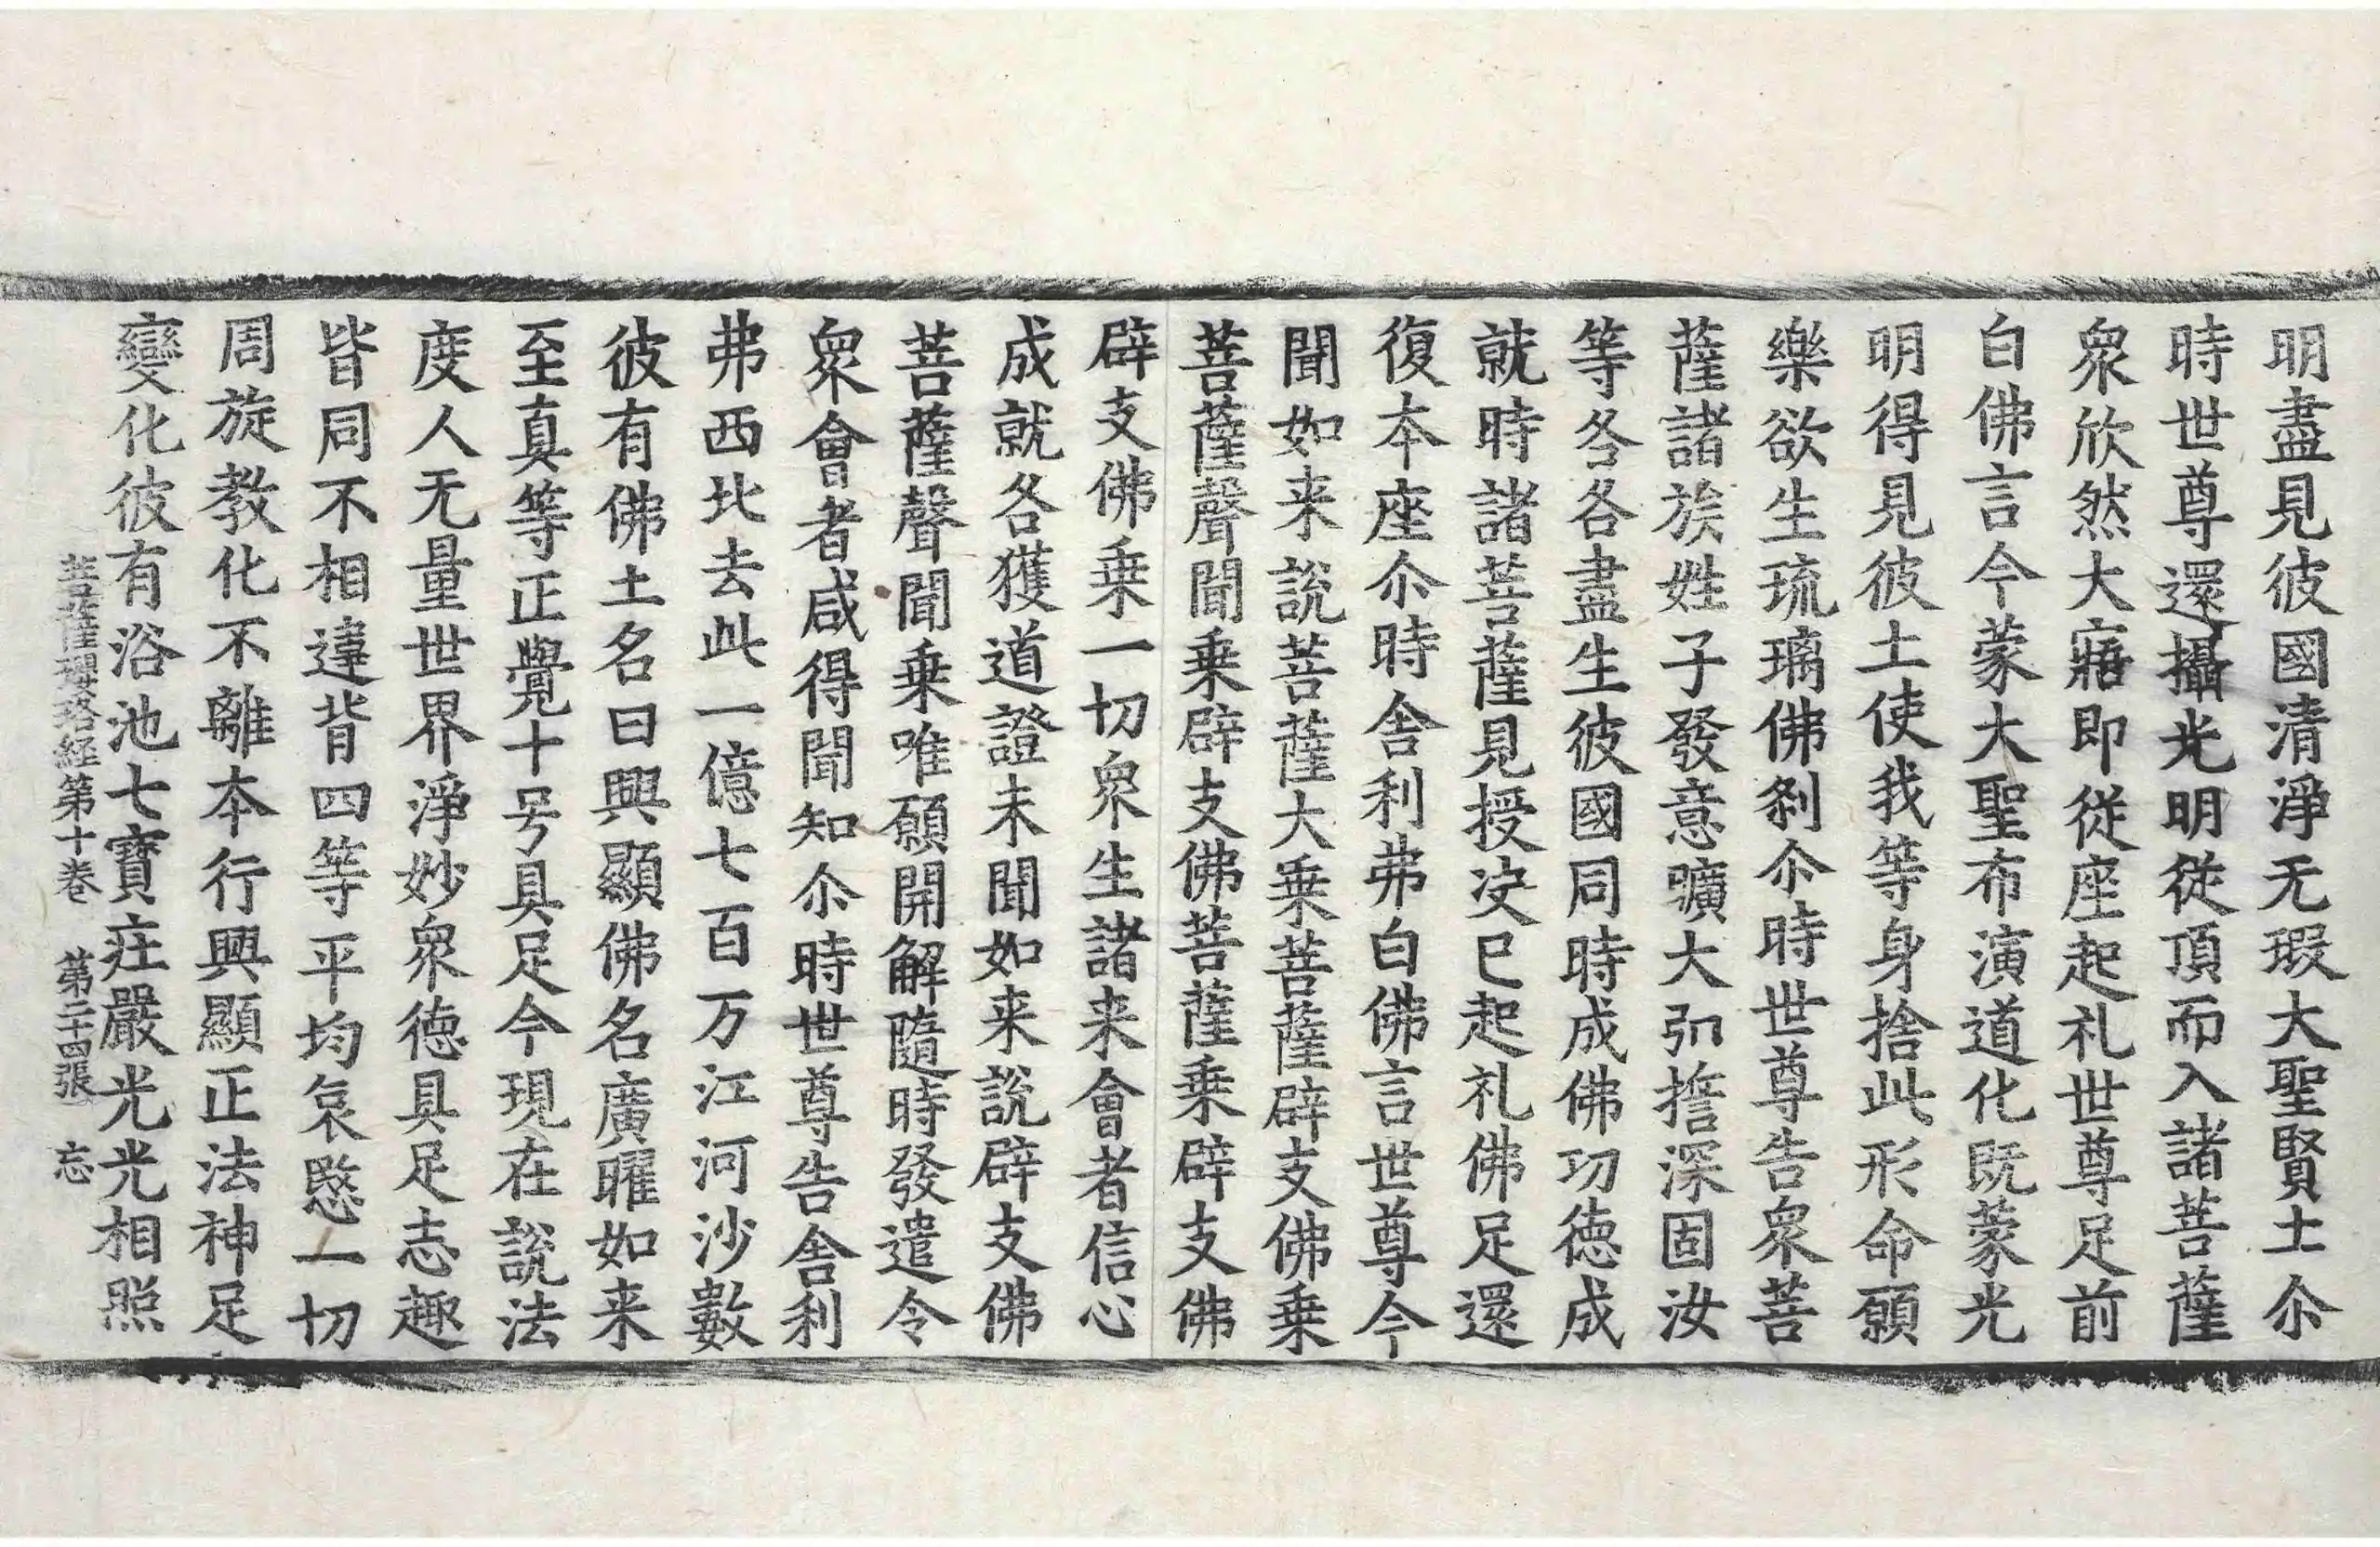 明盡見彼國清淨无瑕大聖賢士尒
時世尊還攝光明從頂而入諸菩薩
衆欣然大寤即從座起礼世尊足前
白佛言今蒙大聖布演道化既蒙光
明得見彼土使我等身捨此形命願
樂欲生琉璃佛刹尒時世尊告衆菩
薩諸族姓子發意曠大弘誓深固汝
等各各盡生彼國同時成佛功德成
就時諸菩薩見授决已起礼佛足還
復本座尒時舍利弗白佛言世尊今
聞如来說菩薩大乗菩薩辟支佛乗
菩薩聲聞乗辟支佛菩薩乗辟支佛
辟支佛乗一切衆生諸来會者信心
成就各獲道證未聞如来說辟支佛
菩薩聲聞乗唯願開解隨時發遣令
衆會者咸得聞知尒時世尊告舍利
弗西北去此一億七百万江河沙數
彼有佛土名曰興顯佛名廣曜如来
至真等正覺十号具足今現在說法
度人无量世界淨妙衆德具足志趣
皆同不相違背四等平均哀愍一切
周旋教化不離本行興顯正法神足
變化彼有浴池七寶莊嚴光光相照
菩薩瓔珞経第十卷　第二十四張　忘